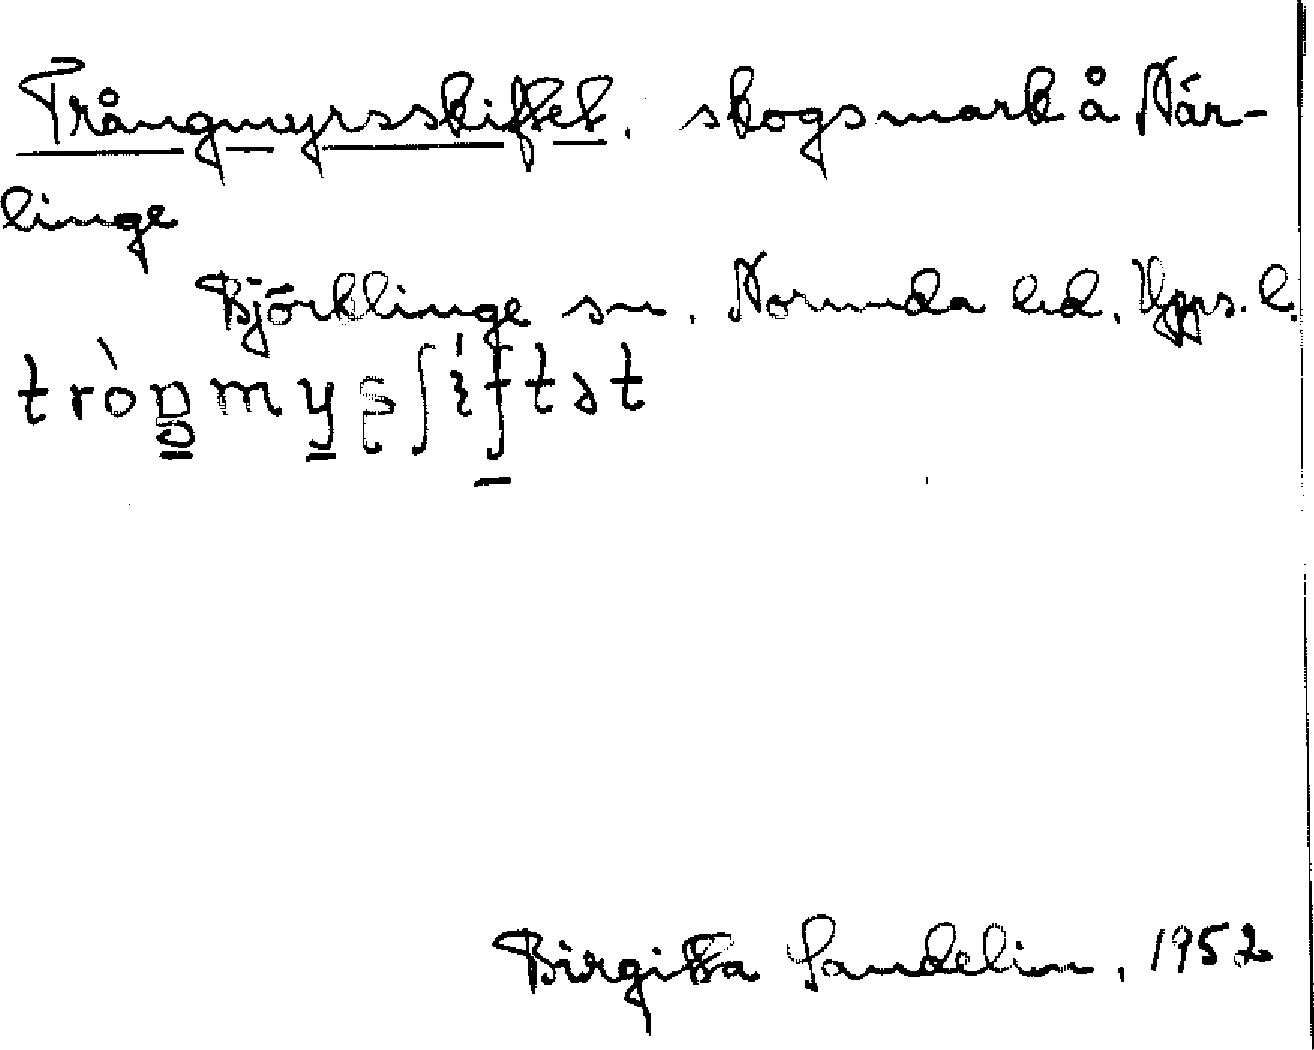 Trångmyrsskiftet. skogsmark å När-
linge
Björklinge sn. Norunda hd. Upps. l.
tròŋmyʂʃiftət
Birgitta Sandelin, 1952